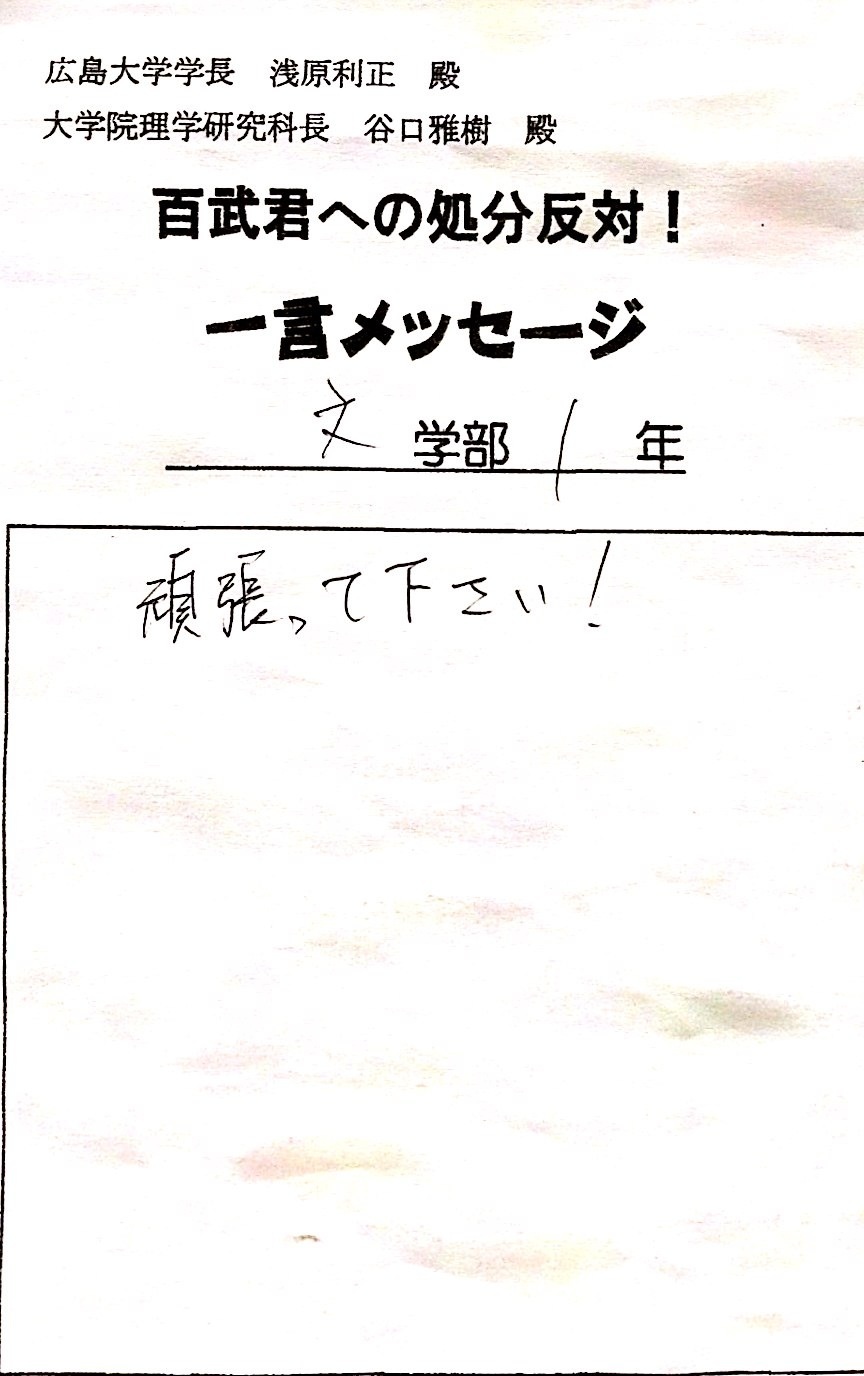 広島大学学長　浅原利正　殿
大学院理学研究科長　谷口雅樹　殿
百武君への処分反対！
一言メッセージ
文学部 1 年
頑張って下さい！